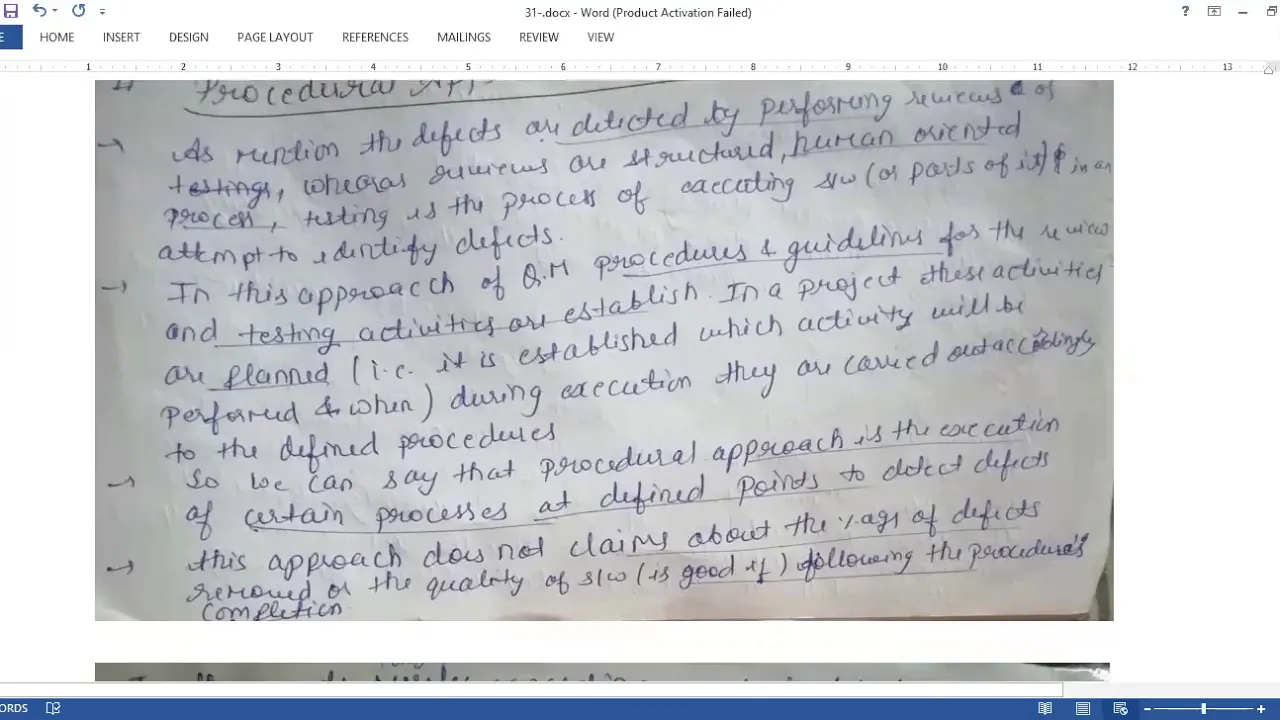 31-.docx - Word (Product Activation Failed)
HOME INSERT DESIGN PAGE LAYOUT REFERENCES MAILINGS REVIEW VIEW
1 2 3 4 5 6 7 8 9 10 11 12 13
Procedural
→ As mention the defects are detected by performing reviews of
testings, wheras reviews are structured, human oriented
process, testing is the process of executing s/w (or parts of it) in an
attmpt to identify defects.
→ In this approacch of Q.M procedures & guidelines for the review
and testing activities are establish. In a project these activities
are planned (i.e. it is established which activity will be
performed & when) during execution they are carried out accordingly
to the defined procedures
→ So we can say that procedural approach is the execution
of certain processes at defined points to detect defects
→ this approach does not claims about the %age of defects
removed or the quality of s/w (is good if) following the procedure's
completion
ORDS